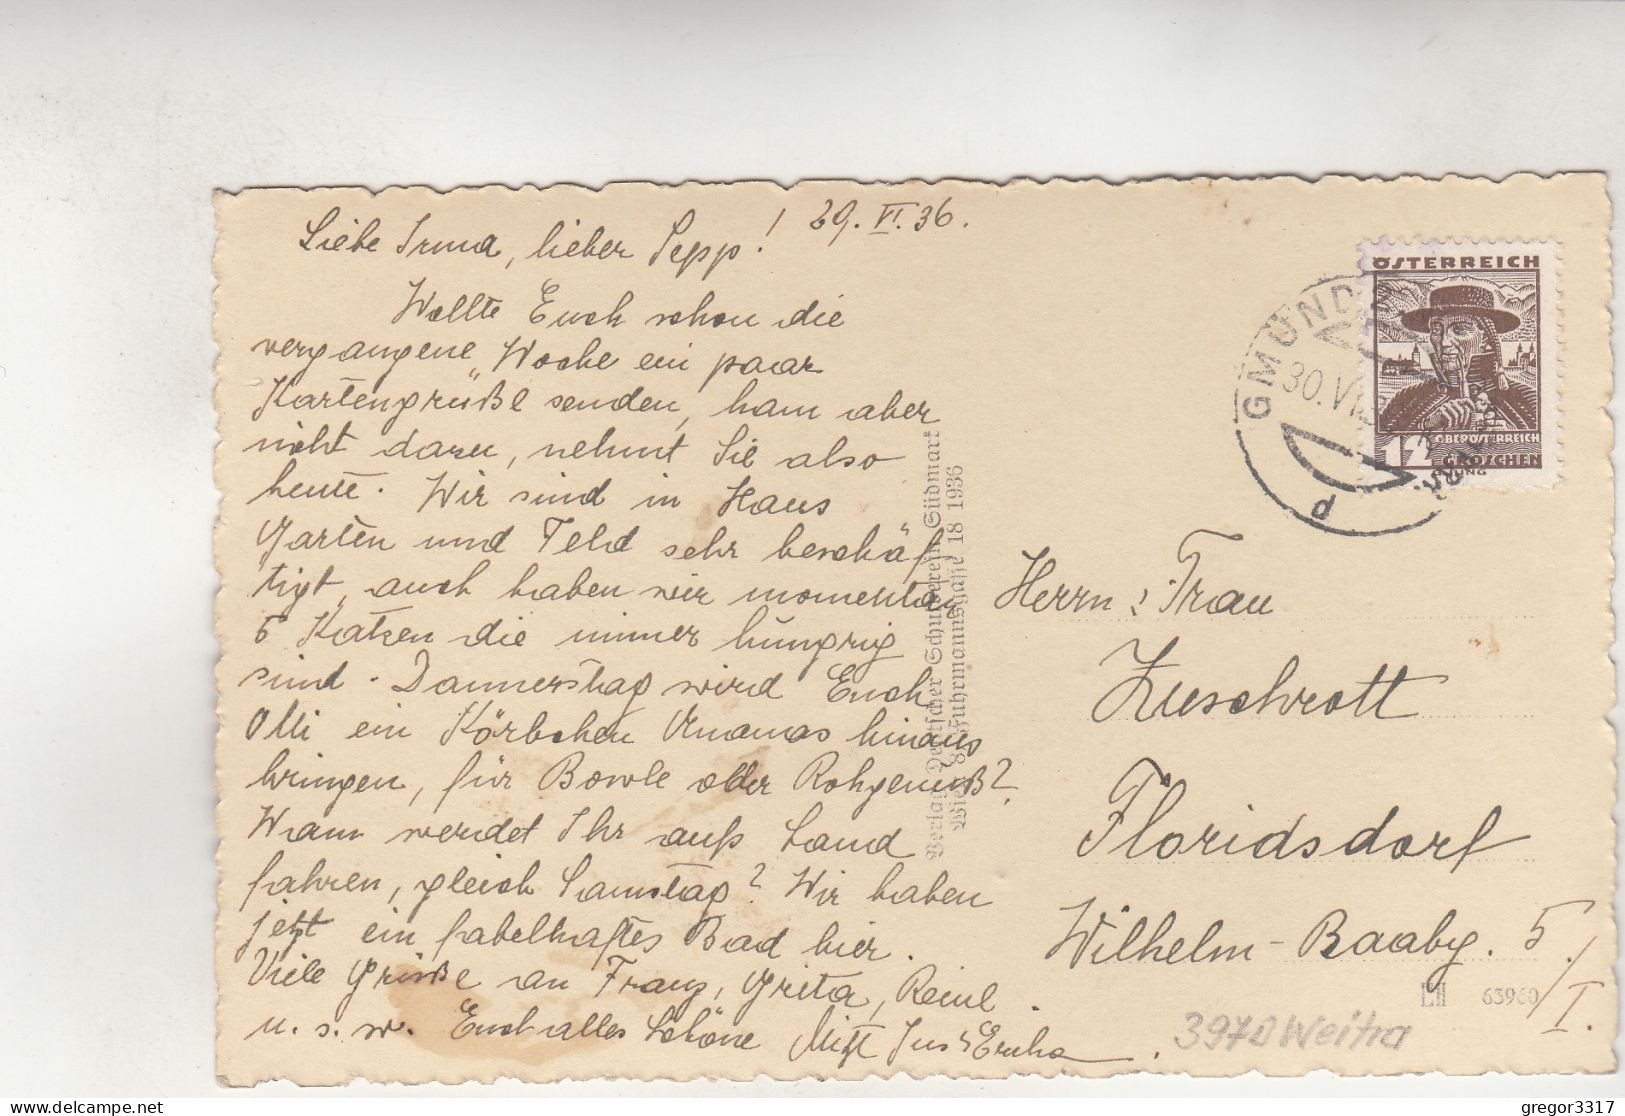 29. VI. 36.
Liebe Irma, lieber Sepp!
Wollte Euch schon die
vergangene Woche ein paar
Kartengrüße senden, kam aber
nicht dazu, nehmt Sie also
heute. Wir sind in Haus
Garten und Feld sehr beschäf
tigt, auch haben wir momentan
5 Katzen die immer hungrig
sind. Donnerstag wird Euch
Olli ein Körbchen Ananas hinaus
bringen, für Bowle oder Rohgenuß?
Wann werdet Ihr aufs Land
fahren, gleich Samstag? Wir haben
jetzt ein fabelhaftes Bad hier.
Viele Grüße an Franz, Grita, Reinl.
u. s. w. Euch alles Schöne Mitzi
Verlag: Deutscher Schulverein Südmark
Wien 8. Fuhrmannsgasse 18 1936
ÖSTERREICH
OBERÖSTERREICH
12 GROSCHEN
GMÜND
30. VI
d
Herrn & Frau
Zuschrott
Floridsdorf
Wilhelm-Raabg. 5/I.
LII 63960
3970 Weitra
gregor3317